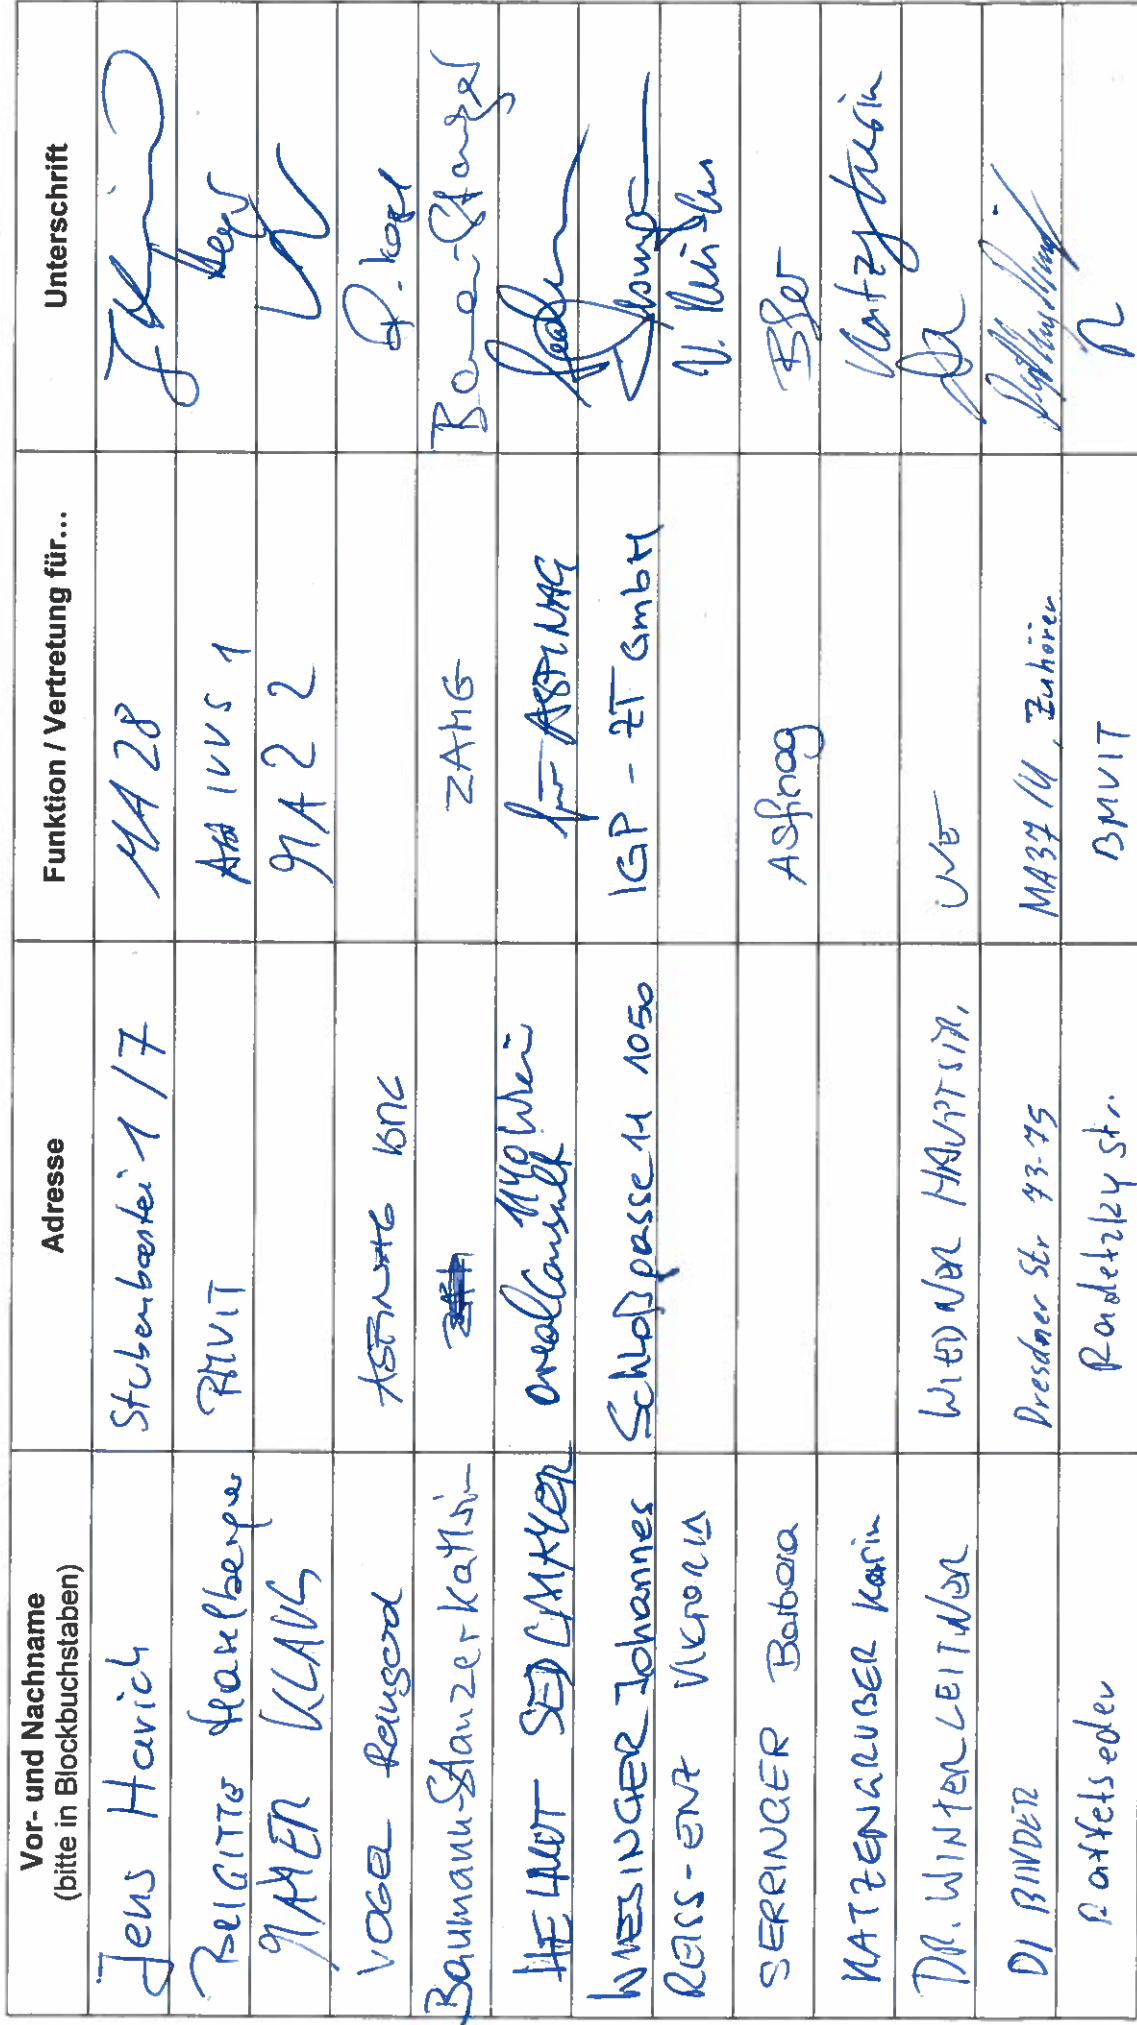 Vor- und Nachname Adresse Funktion / Vertretung für... Unterschrift
(bitte in Blockbuchstaben)
Jens Harich Stubenbastei 1/7 MA 28
BRIGITTE Haselberger BMVIT Abt IVVS 1
MAYER KLAUS MA 22
VOGEL Raimund ASFINAG BMG R. Vogel
Baumann-Stanzer Kathrin ZAMG Baumann-Stanzer
HELMUT SEDLMAYER arealConsult 1140 Wien für ASFINAG
WIESINGER Johannes Schloßgasse 11 1050 IGP - ZT GmbH
REISS-ENZ VIKTORIA V. Reiss-Enz
SERRINGER Barbara Asfinag
KATZENGRUBER Karin
DR. WINTERLEITNER WIEDNER HAUPTSTR. UVE
DI BINDER Dresdner Str. 73-75 MA37/U, Zuhörer
Raffetseder Radetzkystr. BMVIT